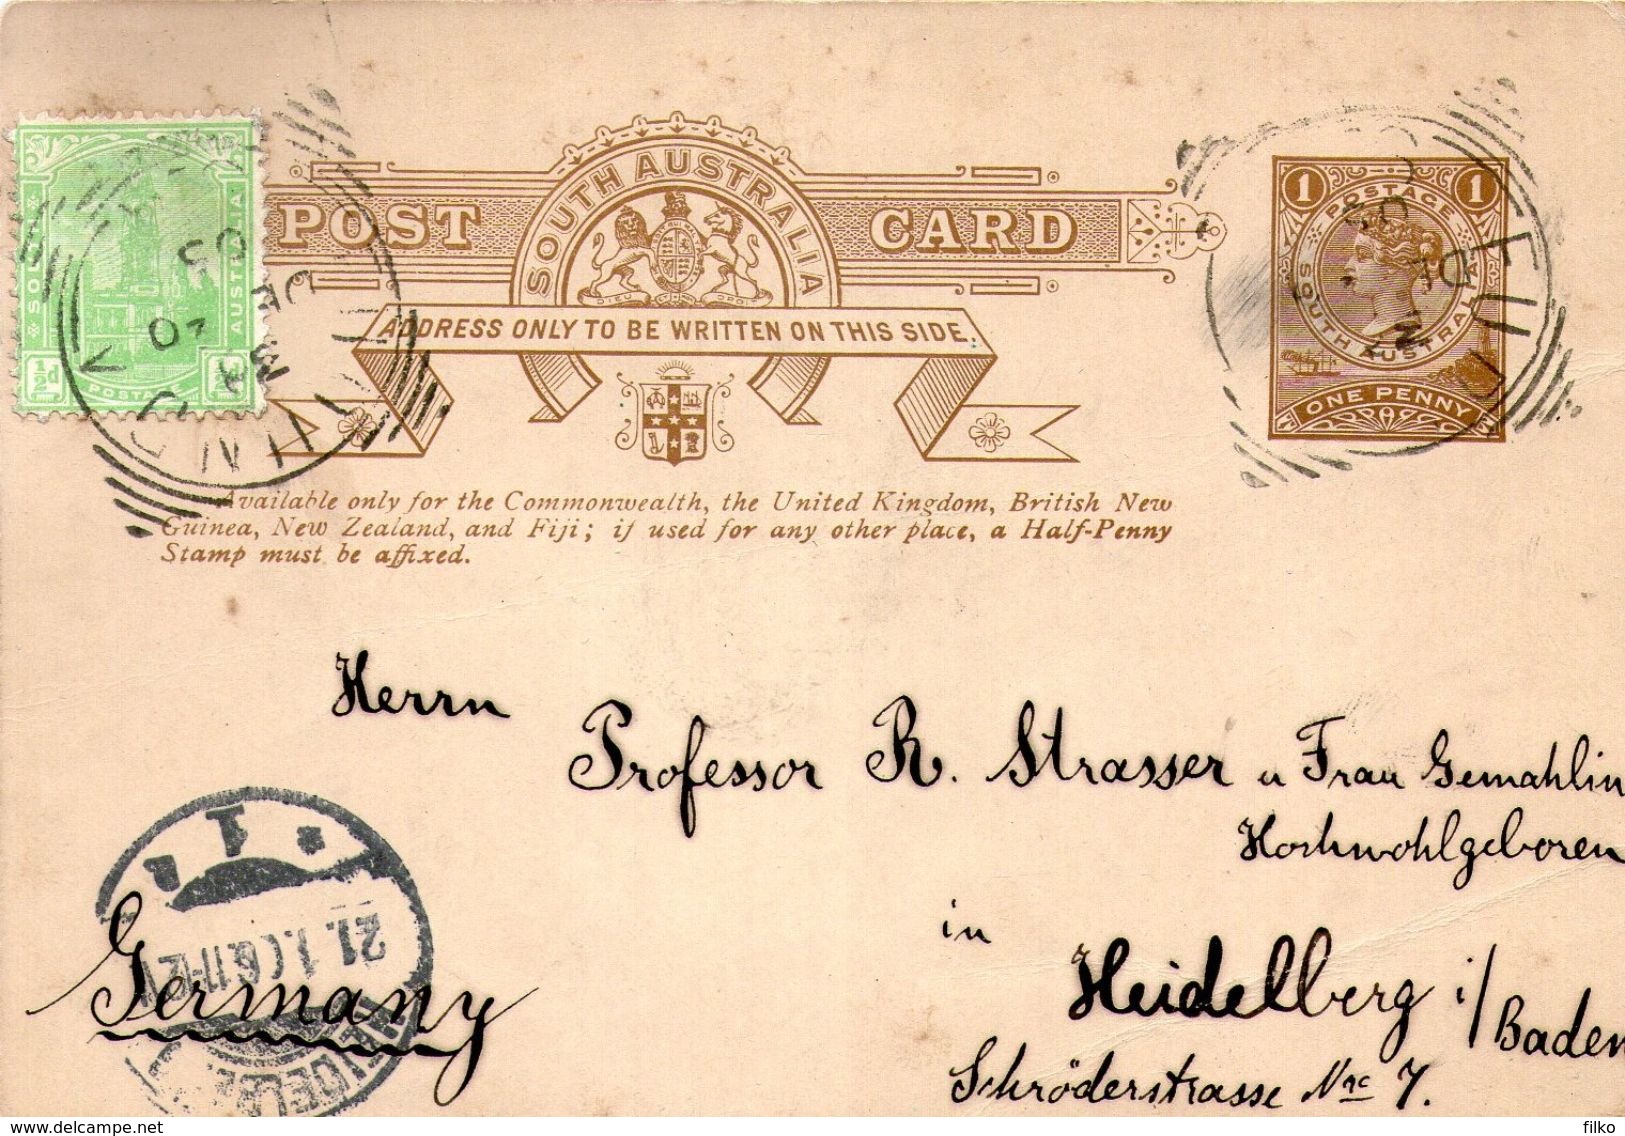 SOUTH AUSTRALIA
POST CARD
ADDRESS ONLY TO BE WRITTEN ON THIS SIDE.
Available only for the Commonwealth, the United Kingdom, British New
Guinea, New Zealand, and Fiji; if used for any other place, a Half-Penny
Stamp must be affixed.
AUSTRALIA
½d
POSTAGE
1 POSTAGE 1
SOUTH AUSTRALIA
ONE PENNY
Herrn
Professor R. Strasser u Frau Gemahlin
Hochwohlgeboren
in
Heidelberg i/Baden
Schröderstrasse No 7.
Germany
21.1.
11-12
delcampe.net
filko